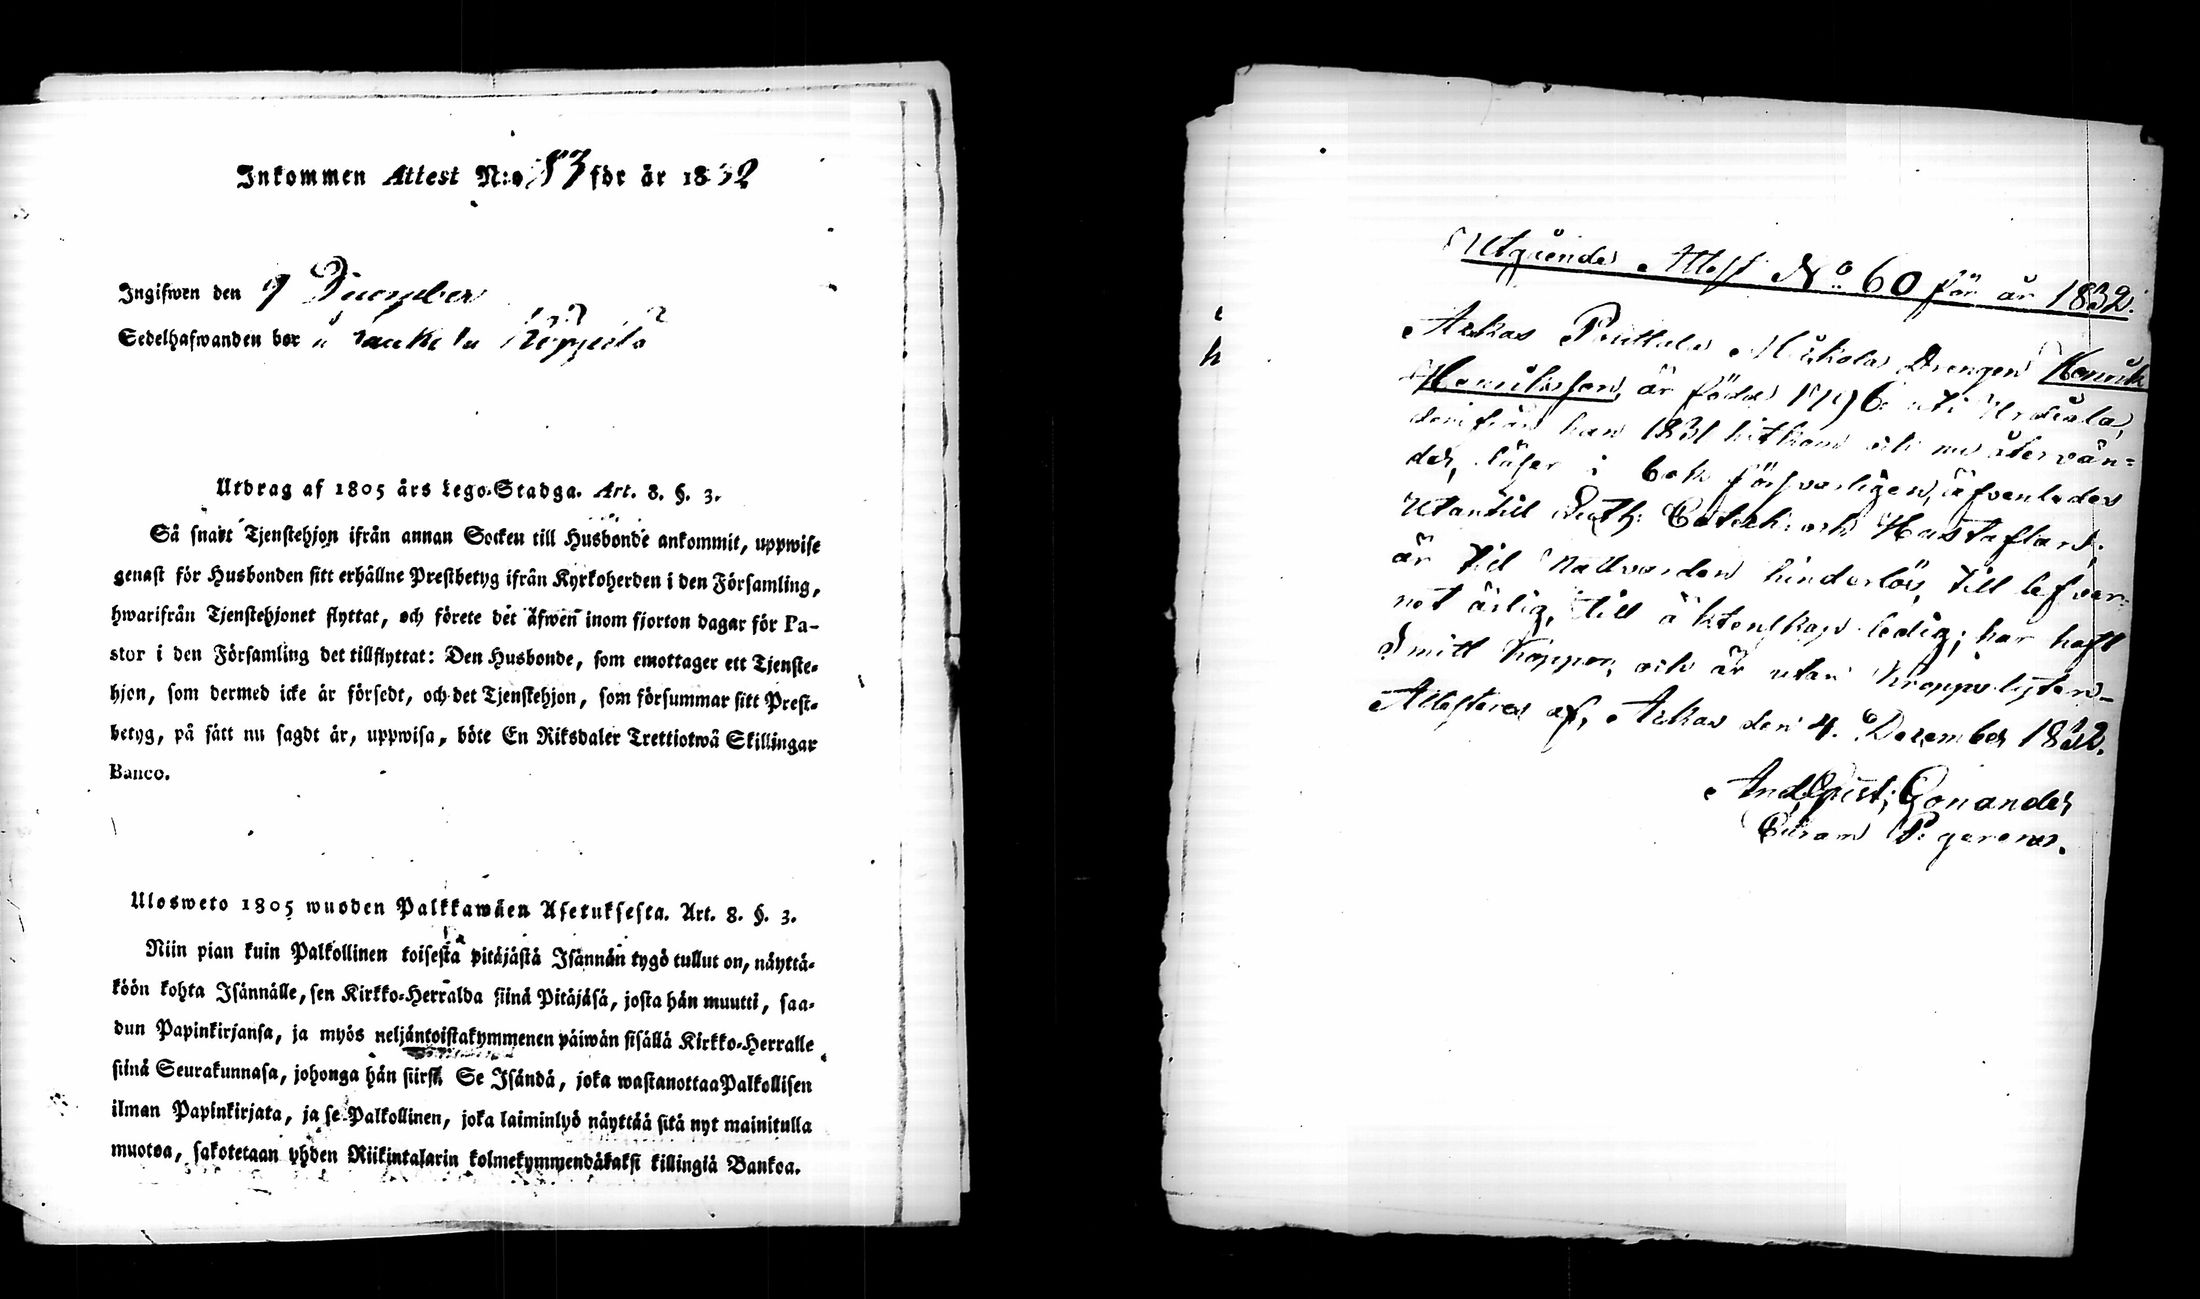 Inkommen Attest N:o 83 för år 1832
Ingifwen den 9 December
Sedelhafwanden bor å
Utdrag af 1805 års Lego-Stadga. Art. 8. §. 3.
Så snart Tjenstehjon ifrån annan Socken till Husbonde ankommit, uppwise
genast för Husbonden sitt erhållne Prestbetyg ifrån Kyrkoherden i den Församling,
hwarifrån Tjenstehjonet flyttat, och förete det äfwen inom fjorton dagar för Pa-
stor i den Församling det tillflyttat: Den Husbonde, som emottager ett Tjenste-
hjon, som dermed icke är försedt, och det Tjenstehjon, som försummar sitt Prest-
betyg, på sätt nu sagdt är, uppwisa, böte En Riksdaler Trettiotwå Skillingar
Banco.
Ulosweto 1805 wuoden Palkkawäen Asetuksesta. Art. 8. §. 3.
Niin pian kuin Palkollinen toisesta pitäjästä Isännän tygö tullut on, näyttä-
köön kohta Isännälle, sen Kirkko-Herralda siinä Pitäjäsä, josta hän muutti, saa-
dun Papinkirjansa, ja myös neljäntoistakymmenen päiwän sisällä Kirkko-Herralle
siinä Seurakunnasa, johonga hän siirsi. Se Isändä, joka wastanottaa Palkollisen
ilman Papinkirjata, ja se Palkollinen, joka laiminlyö näyttää sitä nyt mainitulla
muotoa, sakotetaan yhden Riikintalarin kolmekymmendäkaksi killingiä Bankoa.
Utgående Attest No 60 för år 1832.
Askas Drengen Henrik
Henriksson, är född 1796 uti Urdiala,
derifrån han 1831 hitkom och nu återvän-
der, läser i bok försvarligen, äfvenledes
utantill Luth: Cateches och Hustaflan;
är till Nattvarden hinderlös, till lefver-
net ärlig, till äktenskap ledig; har haft
Smitt koppor, och är utan Kroppslyten.
Attesteras af, Askas den 4. December 1832.
And. Gonander